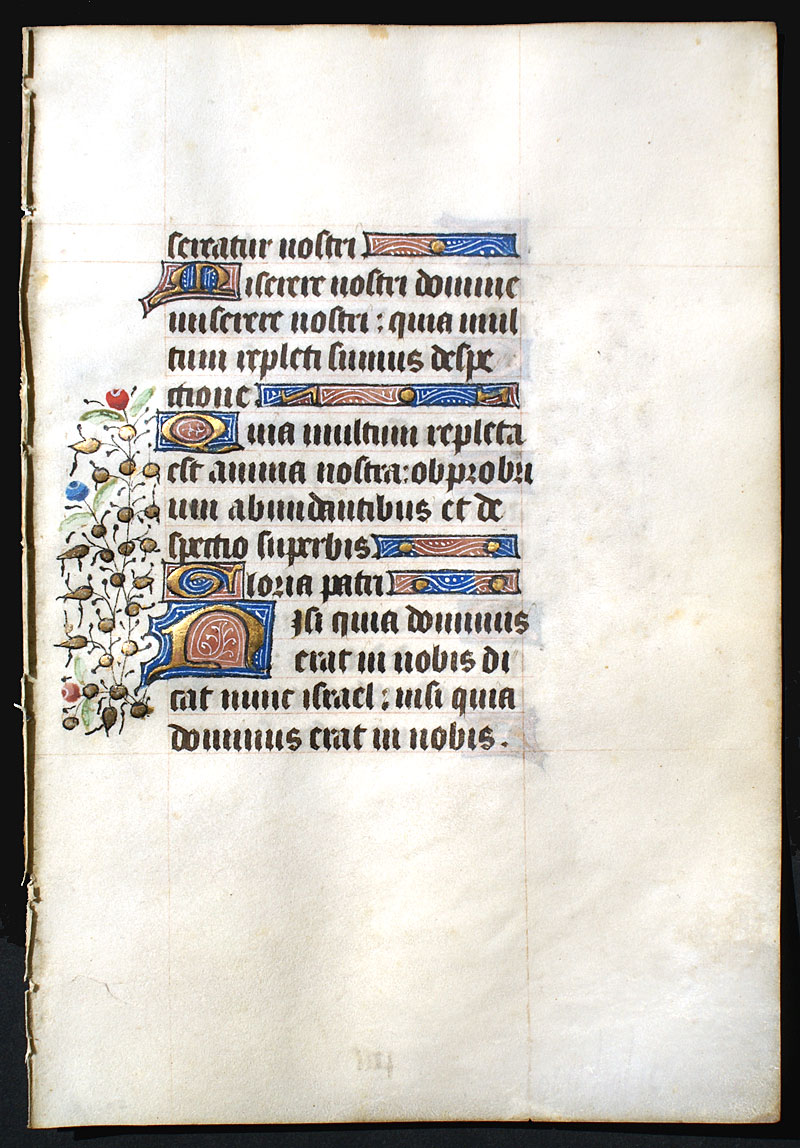 sereatur nostri
Miserere nostri domine
miserere nostri : quia mul
tum repleti sumus despe
ctione
Quia multum repleta
est anima nostra : obprobri
um abundantibus et de
spectio superbis
Gloria patri
Nisi quia dominus
erat in nobis di
cat nunc israel : nisi quia
dominus erat in nobis .